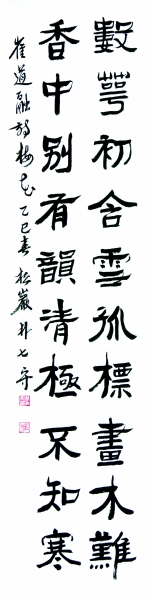 數萼初含雪孤標畫本難
香中别有韻清極不知寒
崔道融詩梅花乙巳春松巖朴七守